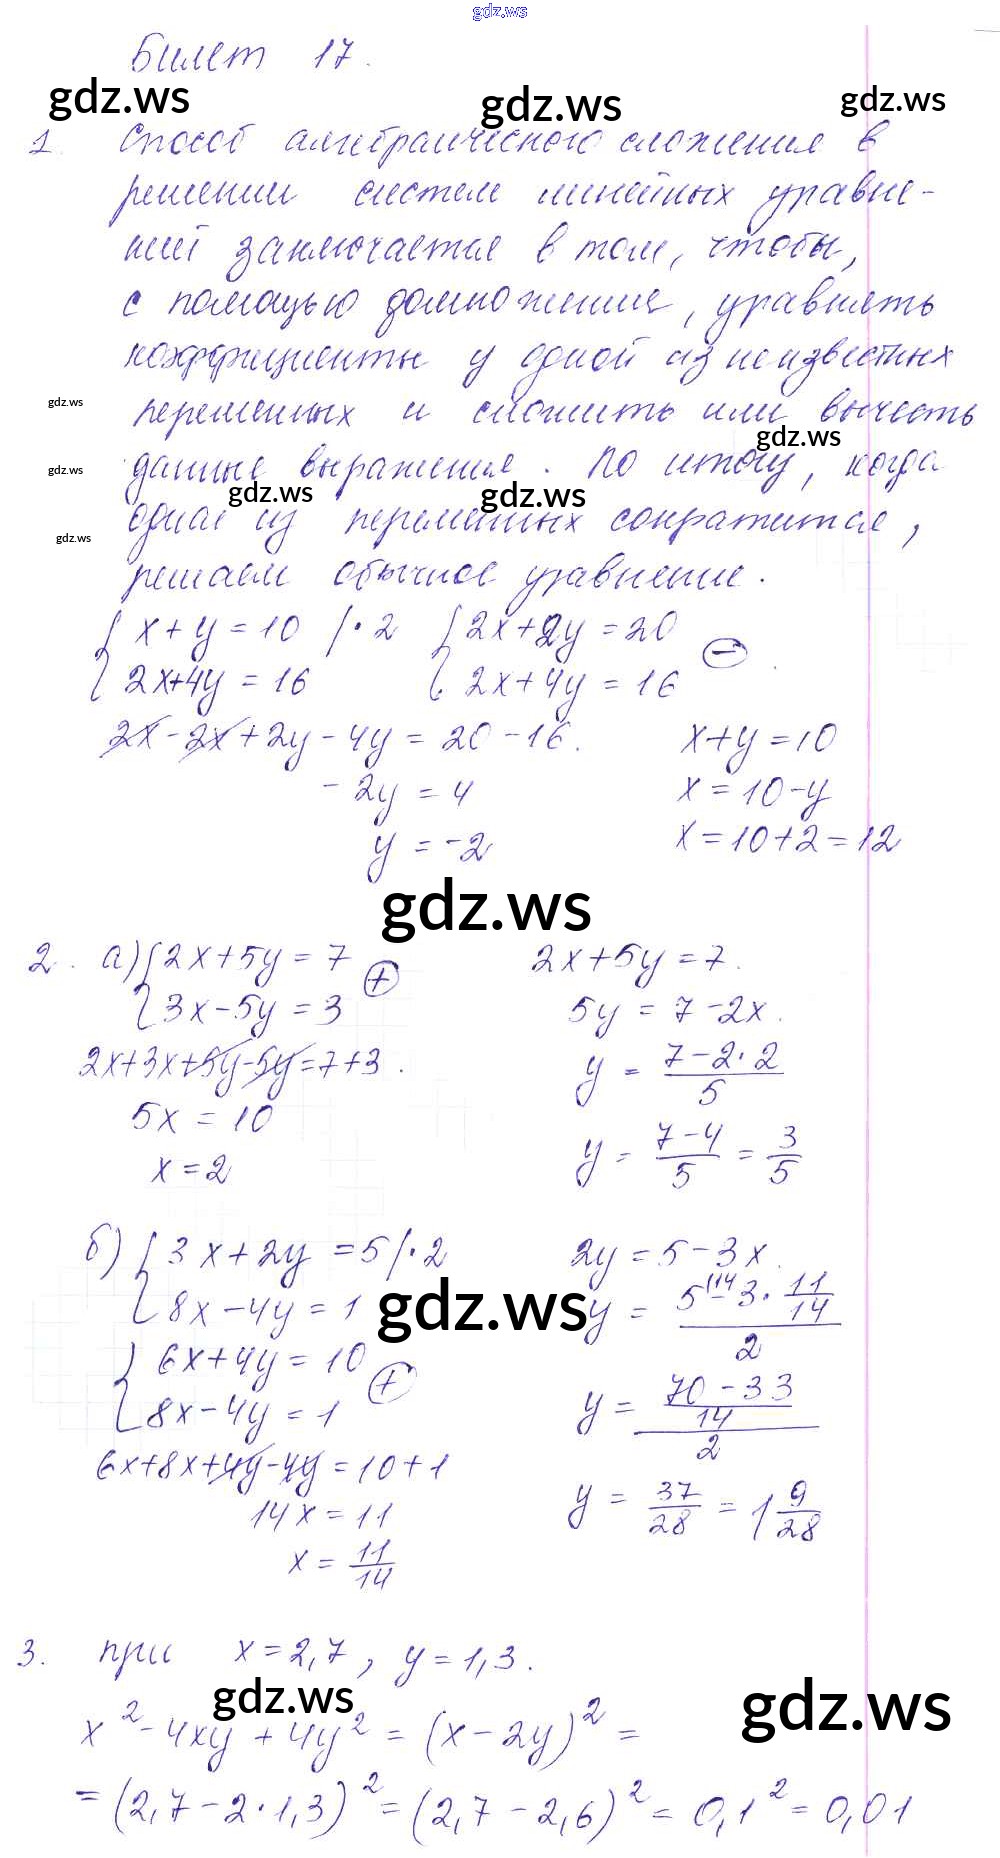 gdz.ws
Билет 17.
gdz.ws gdz.ws gdz.ws
1. Способ алгебраического сложения в
решении систем линейных уравне-
ний заключается в том, чтобы,
с помощью домножения, уравнять
коэффициенты у одной из неизвестных
gdz.ws
переменных и сложить или вычесть
gdz.ws
gdz.ws
данные выражения. По итогу, когда
gdz.ws gdz.ws
одная из переменных сократится,
gdz.ws
решаем обычное уравнение.
{ x + y = 10 | · 2 { 2x + 2y = 20
2x + 4y = 16 2x + 4y = 16 ⊖
2x - 2x + 2y - 4y = 20 - 16. x + y = 10
- 2y = 4 x = 10 - y
y = -2 x = 10 + 2 = 12
gdz.ws
2. а) { 2x + 5y = 7 ⊕ 2x + 5y = 7.
3x - 5y = 3 5y = 7 - 2x.
2x + 3x + 5y - 5y = 7 + 3. y = (7 - 2 · 2)/5
5x = 10
x = 2 y = (7 - 4)/5 = 3/5
б) { 3x + 2y = 5 | · 2 2y = 5 - 3x.
8x - 4y = 1 gdz.ws y = (5^(14 - 3 · 11/14)/2
{ 6x + 4y = 10 ⊕
8x - 4y = 1 y = ((70 - 33)/14)/2
6x + 8x + 4y - 4y = 10 + 1
14x = 11 y = 37/28 = 1 9/28
x = 11/14
3. при x = 2,7, y = 1,3.
gdz.ws gdz.ws
x² - 4xy + 4y² = (x - 2y)² =
= (2,7 - 2 · 1,3)² = (2,7 - 2,6)² = 0,1² = 0,01